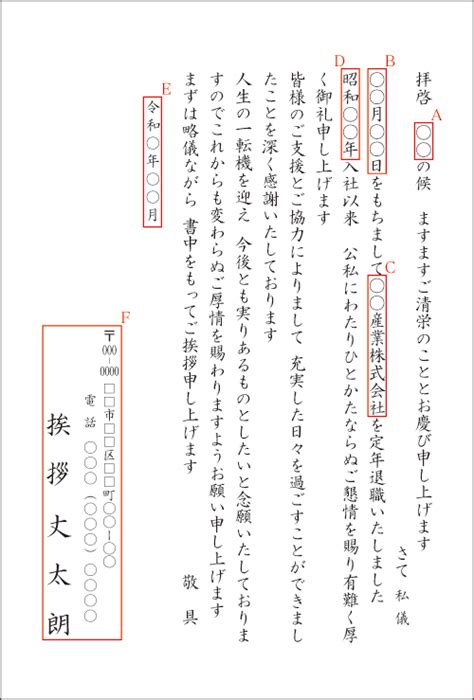 拝啓 〇〇の候 ますますご清栄のこととお慶び申し上げます
さて 私儀
〇〇月〇〇日をもちまして〇〇産業株式会社を定年退職いたしました
昭和〇〇年入社以来 公私にわたりひとかたならぬご懇情を賜り有難く厚
く御礼申し上げます
皆様のご支援とご協力によりまして 充実した日々を過ごすことができまし
たことを深く感謝いたしております
人生の一転機を迎え 今後とも実りあるものとしたいと念願いたしておりま
すのでこれからも変わらぬご厚情を賜わりますようお願い申し上げます
まずは略儀ながら 書中をもってご挨拶申し上げます
敬具
令和〇年〇〇月
〒000-0000 □□市□□区□□町〇〇-〇〇
電話 〇〇〇(〇〇〇)〇〇〇〇
挨拶丈太朗
A
B
C
D
E
F